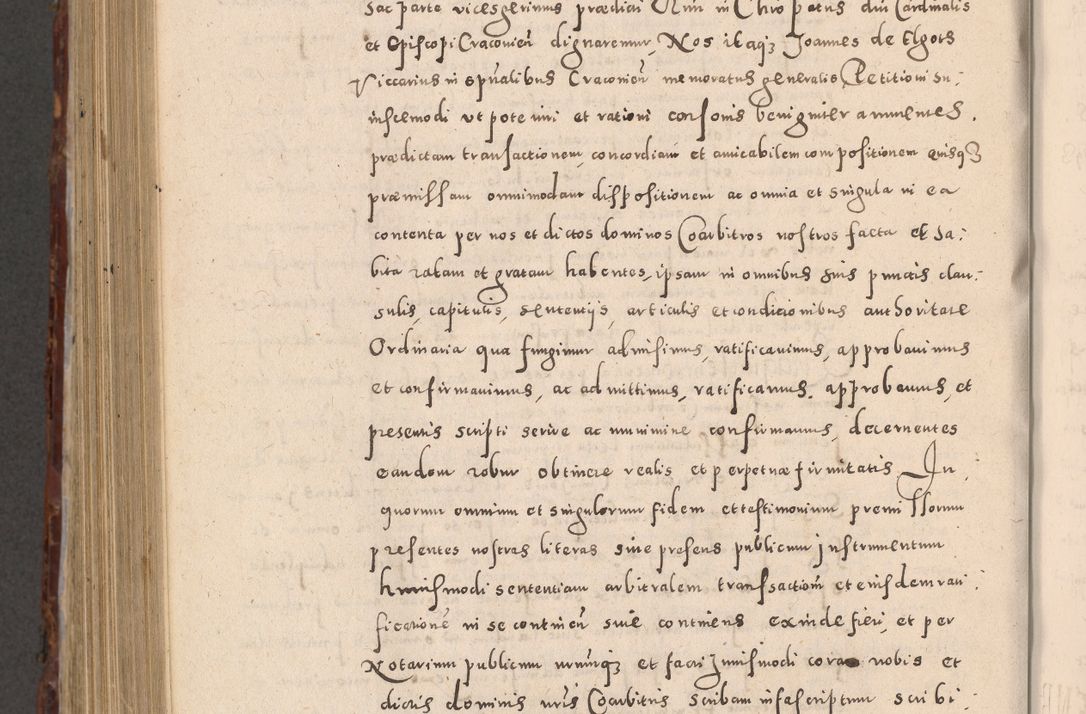 hac parte vicesgerimus prædicti Rmi in Chro patris dni Cardinalis
et Episcopi Cracovien̄ dignaremur, Nos itaq₃ Joannes de Elgots
Viccarius in spn̄alibus Cracovien̄ memoratus generalis Petitioni su:
iuscemodi utpote iuri et rationi consonis benigniter annuentes.
prædictam transactionem, concordiam et amicabilem compositionem eiusq₃
præmissam omnimodam dispositionem ac omnia et singula in ea
contenta per nos et dictos dominos Coarbitros nostros facta et ha:
bita ratam et gratam habentes, ipsam in omnibus suis punctis clau:
sulis, capitulis, sententijs, articulis et condicionibus authoritate
Ordinaria qua fungimur admisimus, ratificavimus, approbavimus
et confirmavimus, ac admittimus, ratificamus, approbamus, et
presentis scripti serie ac munimine confirmamus, decernentes
eandem robur obtinere realis et perpetuæ firmitatis In
quorum omnium et singulorum fidem et testimonium premissorum
presentes nostras literas sive presens publicum instrumentum
huiusmodi sententiam arbitralem transactionē et eiusdem rati:
ficationē in se continen̄ sive continens exinde fieri, et per
Notarium publicum utrumq₃ et facti huiusmodi coram nobis et
dictis dominis nr̄is Coarbitris scribam infrascriptum scribi: